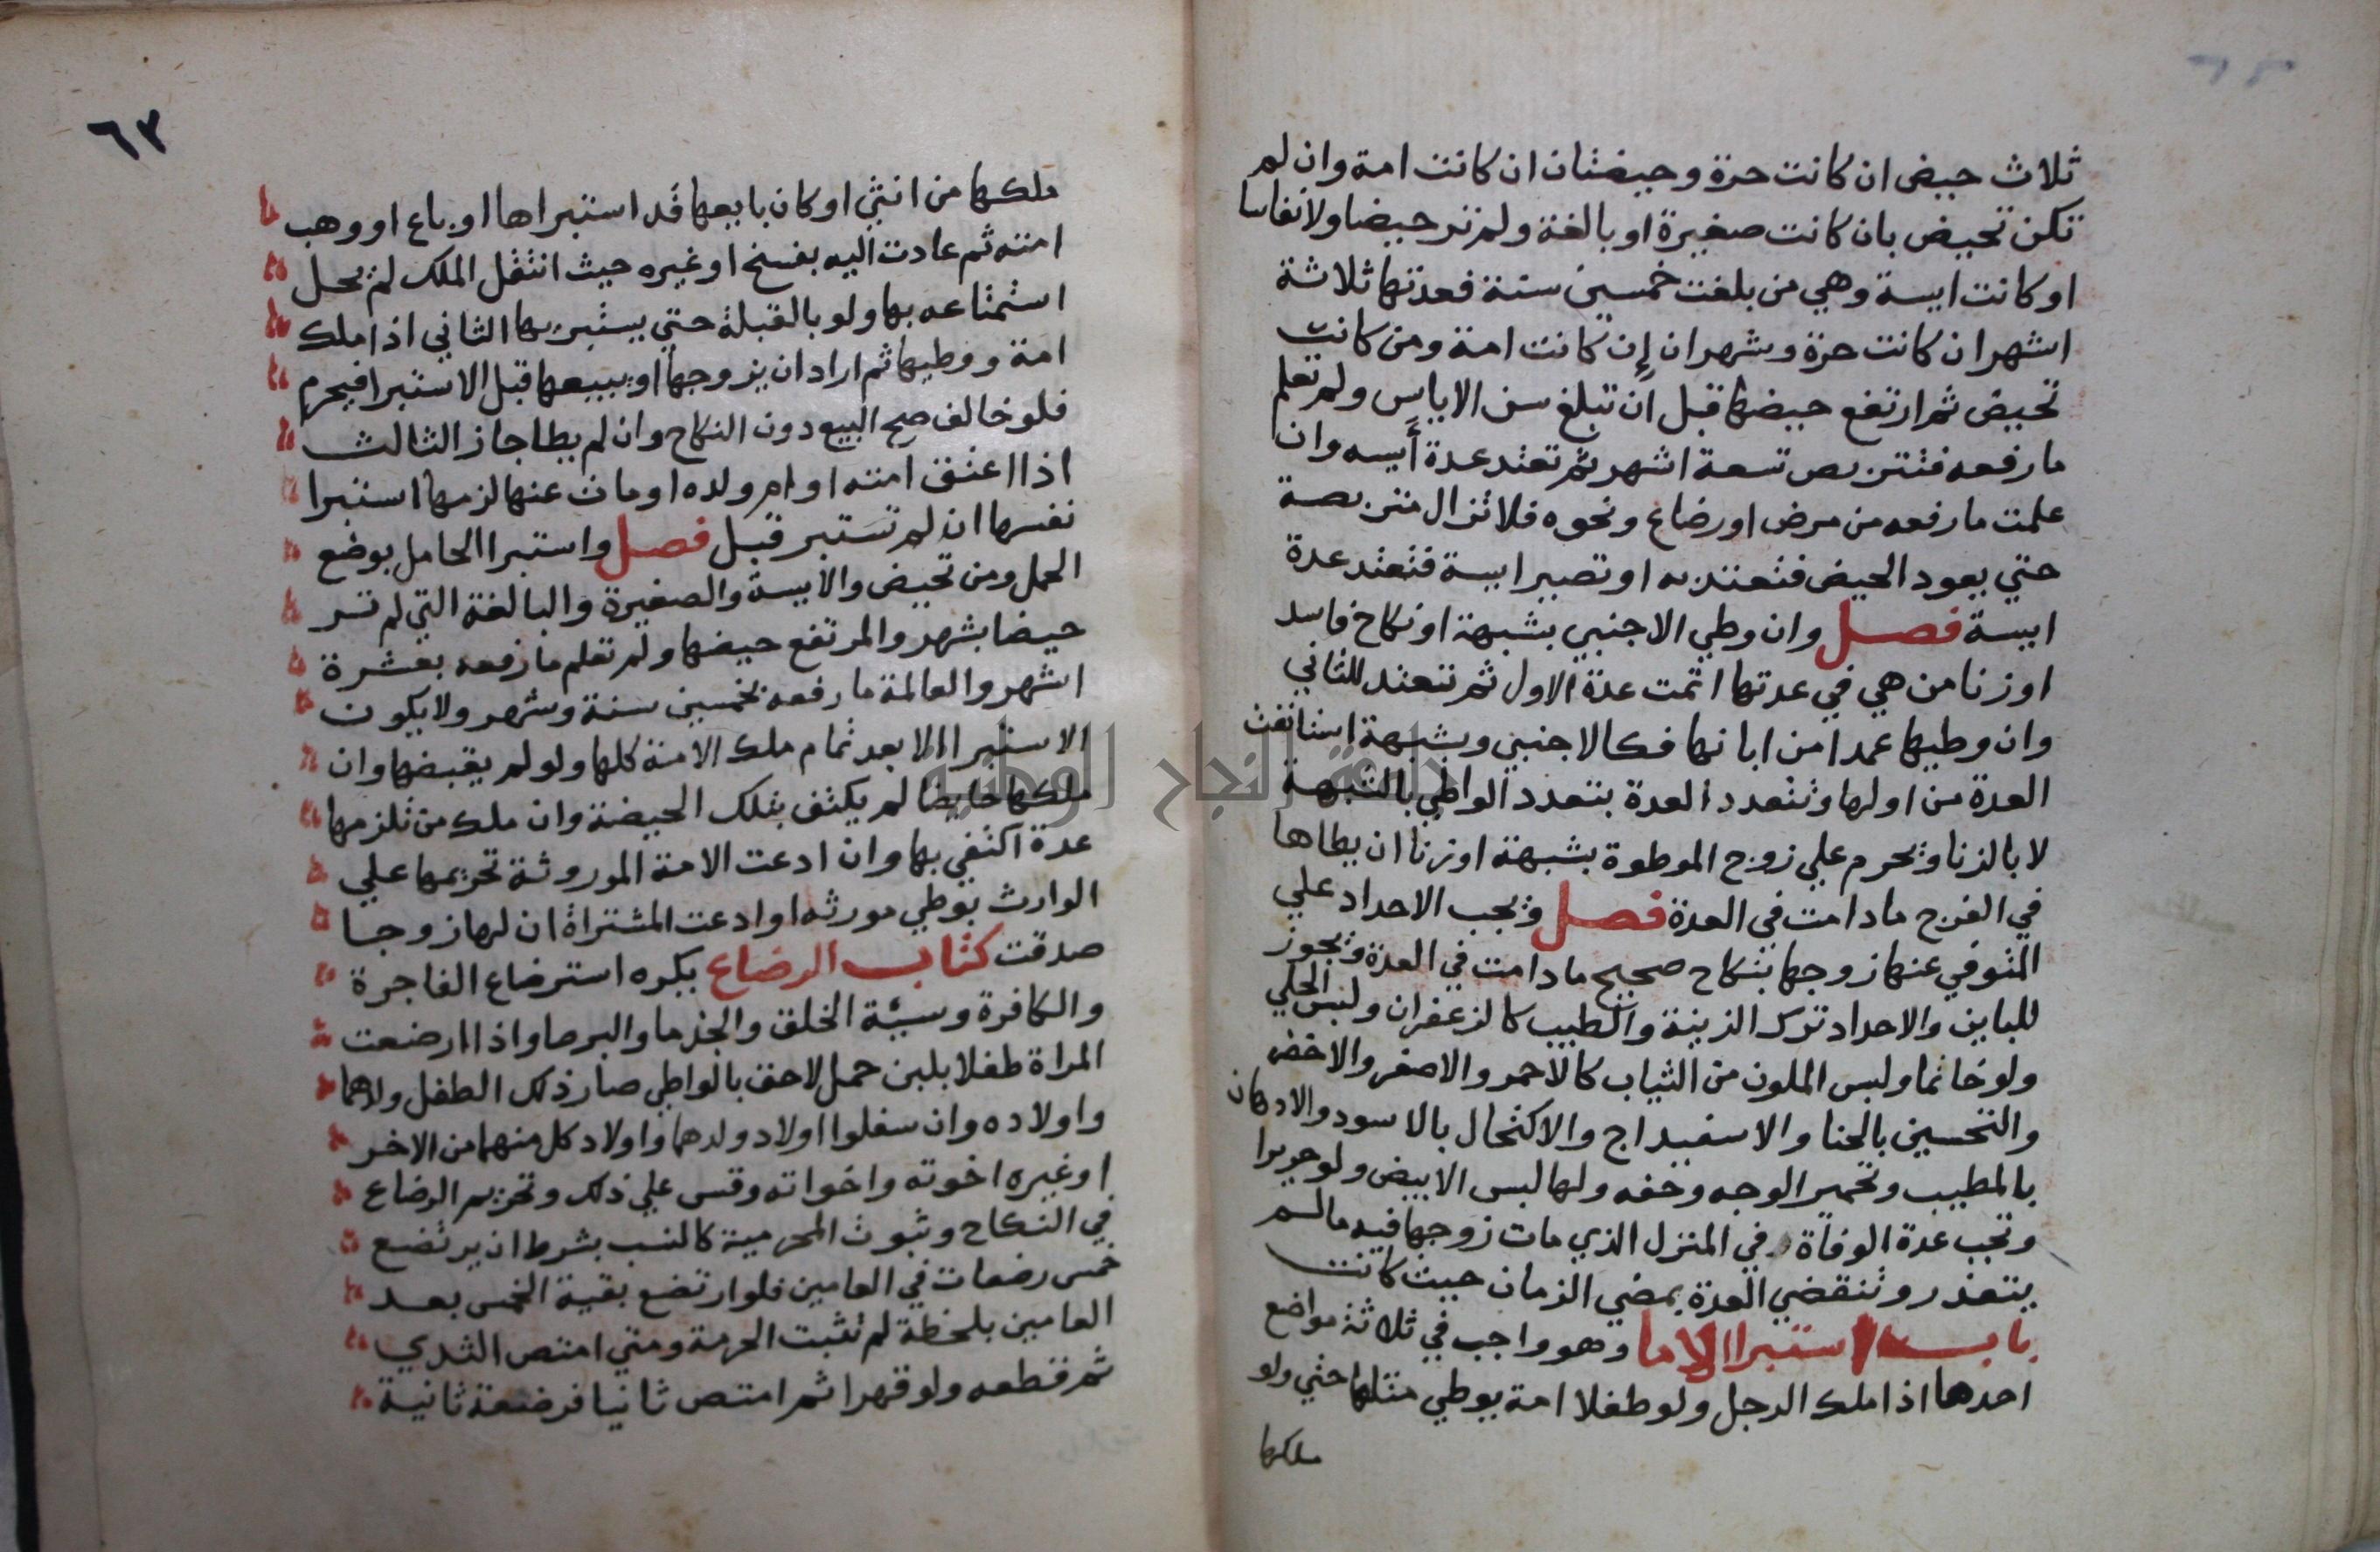 ثلاث حيض ان كانت حرة وحيضتان ان كانت امة وان لم
تكن تحيض بان كانت صغيرة او بالغة ولم تر حيضا ولا نفاسا
او كانت ايسة وهي من بلغت خمسين سنة فعدتها ثلاثة
اشهر ان كانت حرة وشهران إن كانت امة ومن كانت
تحيض ثم ارتفع حيضها قبل ان تبلغ سن الاياس ولم تعلم
ما رفعه فتتربص تسعة اشهر ثم تعتد عدة أيسه وان
علمت ما رفعه من مرض او رضاع ونحوه فلا تزال متربصة
حتي يعود الحيض فتعتد به او تصير ايسة فتعتد عدة
ايسة فصل وان وطي الاجنبي بشبهة او نكاح فاسد
او زنا من هي في عدتها اتمت عدة الاول ثم تعتد للثاني
وان وطيها عمدا من ابانها فكالاجنبي وبشبهة استانفت
العدة من اولها وتتعدد العدة بتعدد الواطي بالشبهة
لا بالزنا ويحرم علي زوج الموطوة بشبهة او زنا ان يطاها
في الفرج ما دامت في العدة فصل ويجب الاحداد علي
المتوفي عنها زوجها بنكاح صحيح ما دامت في العدة ويجوز
للباين والاحداد ترك الزينة والطيب كالزعفران ولبس الحلي
ولو خاتما ولبس الملون من الثياب كالاحمر والاصفر والاخضر
والتحسين بالحنا والاسفيداج والاكتحال بالاسود والادهان
بالمطيب وتحمير الوجه وحفه ولها لبس الابيض ولو حريرا
وتجب عدة الوفاة في المنزل الذي مات زوجها فيه ما لم
يتعذر وتنقضي العدة بمضي الزمان حيث كانت
باب استبرا الاما وهو واجب في ثلاثة مواضع
احدها اذا ملك الرجل ولو طفلا امة يوطي مثلها حتي ولو
ملكها
٦٣
ملكها من انثي او كان بايعها قد استبراها او باع او وهب
امته ثم عادت اليه بفسخ او غيره حيث انتقل الملك لم يحل
استمتاعه بها ولو بالقبلة حتي يستبريها الثاني اذا ملك
امة ووطيها ثم اراد ان يزوجها او يبيعها قبل الاستبرا فيحرم
فلو خالف صح البيع دون النكاح وان لم يطا جاز الثالث
اذا اعتق امته او ام ولده او مات عنها لزمها استبرا
نفسها ان لم تستبر قبل فصل واستبرا الحامل بوضع
الحمل ومن تحيض والايسة والصغيرة والبالغة التي لم تر
حيضا بشهر والمرتفع حيضها ولم تعلم ما رفعه بعشرة
اشهر والعالمة ما رفعه بخمسين سنة وشهر ولا يكون
الاستبرا الا بعد تمام ملك الامة كلها ولو لم يقبضها وان
ملكها حايضا لم يكتف بتلك الحيضة وان ملك من تلزمها
عدة اكتفي بها وان ادعت الامة الموروثة تحريمها علي
الوارث بوطي مورثه او ادعت المشتراة ان لها زوجا
صدقت كتاب الرضاع يكره استرضاع الفاجرة
والكافرة وسيئة الخلق والجذما والبرصا واذا ارضعت
المراة طفلا بلبن حمل لاحق بالواطي صار ذلك الطفل ولدهما
واولاده وان سفلوا اولاد ولدهما واولاد كل منهما من الاخر
او غيره اخوته واخواته وقس علي ذلك وتحريم الرضاع
في النكاح وثبوت المحرمية كالنسب بشرط ان يرتضع
خمس رضعات في العامين فلو ارتضع بقية الخمس بعد
العامين بلحظة لم تثبت الحرمة ومتي امتص الثدي
ثم قطعه ولو قهرا ثم امتص ثانيا فرضعة ثانية
جامعة النجاح الوطنية